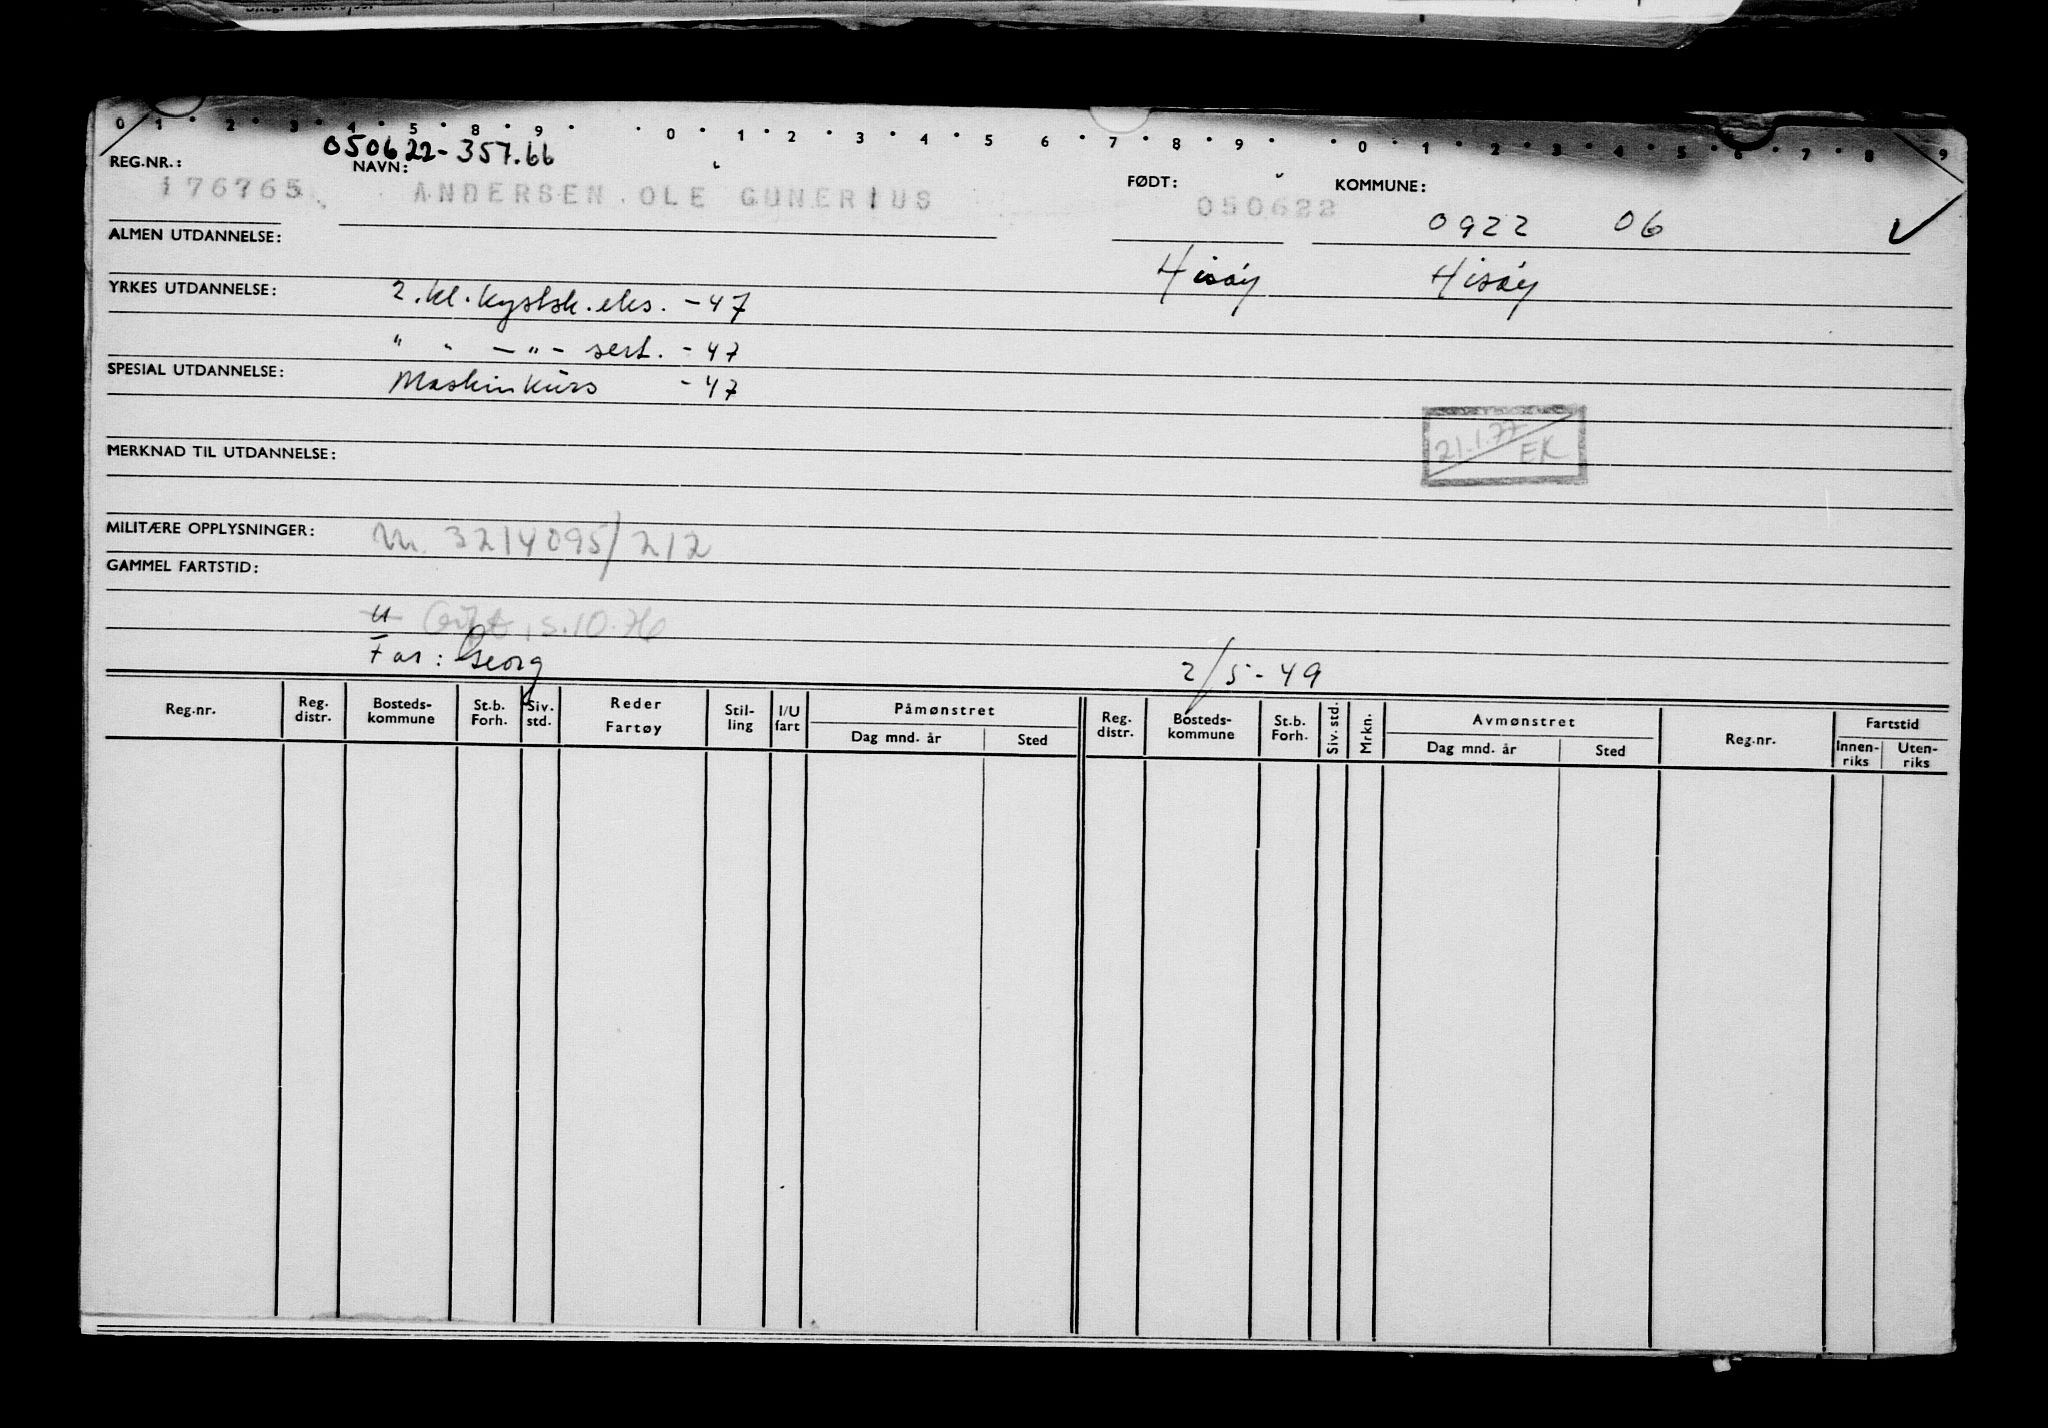 0 1 2 3 4 5 8 9 0 1 2 3 4 5 6 7 8 9 0 1 2 3 4 5 6 7 8 9
050622-357.66
REG.NR.: NAVN: FØDT: KOMMUNE:
176765 ANDERSEN OLE GUNERIUS 050622 0922 06
ALMEN UTDANNELSE: Hisøy Hisøy
YRKES UTDANNELSE: 2.kl.kystsk.eks. -47
" " -"- sert. -47
SPESIAL UTDANNELSE: Maskinkurs -47
21.1.77 EK
MERKNAD TIL UTDANNELSE:
MILITÆRE OPPLYSNINGER: M. 3214095/212
GAMMEL FARTSTID:
u Gift 15.10.76
Far: Georg 2/5-49
Reg.nr. Reg. distr. Bosteds-kommune St.b. Forh. Siv. std. Reder Fartøy Stil-ling I/U fart Påmønstret Dag mnd. år Sted Reg. distr. Bosteds-kommune St.b. Forh. Siv. std. Mrkn. Avmønstret Dag mnd. år Sted Reg.nr. Fartstid Innen-riks Uten-riks